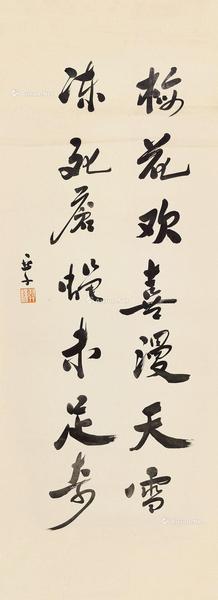 梅花欢喜漫天雪
冻死蒼蝇未足奇